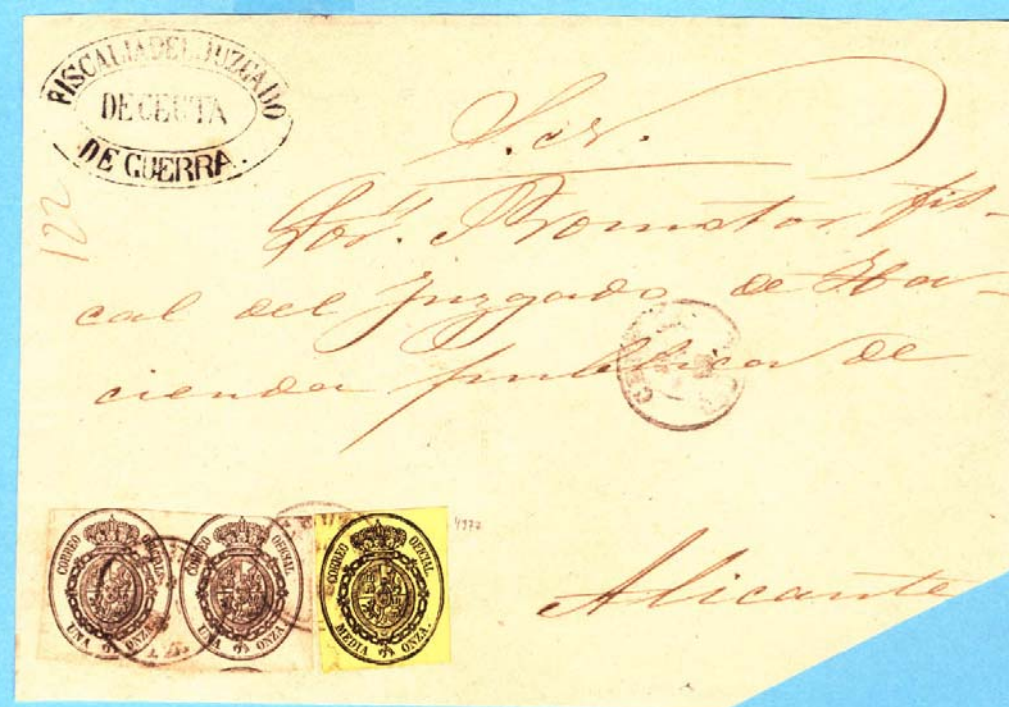 FISCALIA DEL JUZGADO
DE CEUTA
DE GUERRA.
122
Promotor fis-
cal del Juzgado de Ha-
cienda publica de
Alicante
4977
CORREO OFICIAL.
UNA ONZA.
CORREO OFICIAL.
UNA ONZA.
CORREO OFICIAL.
MEDIA ONZA.